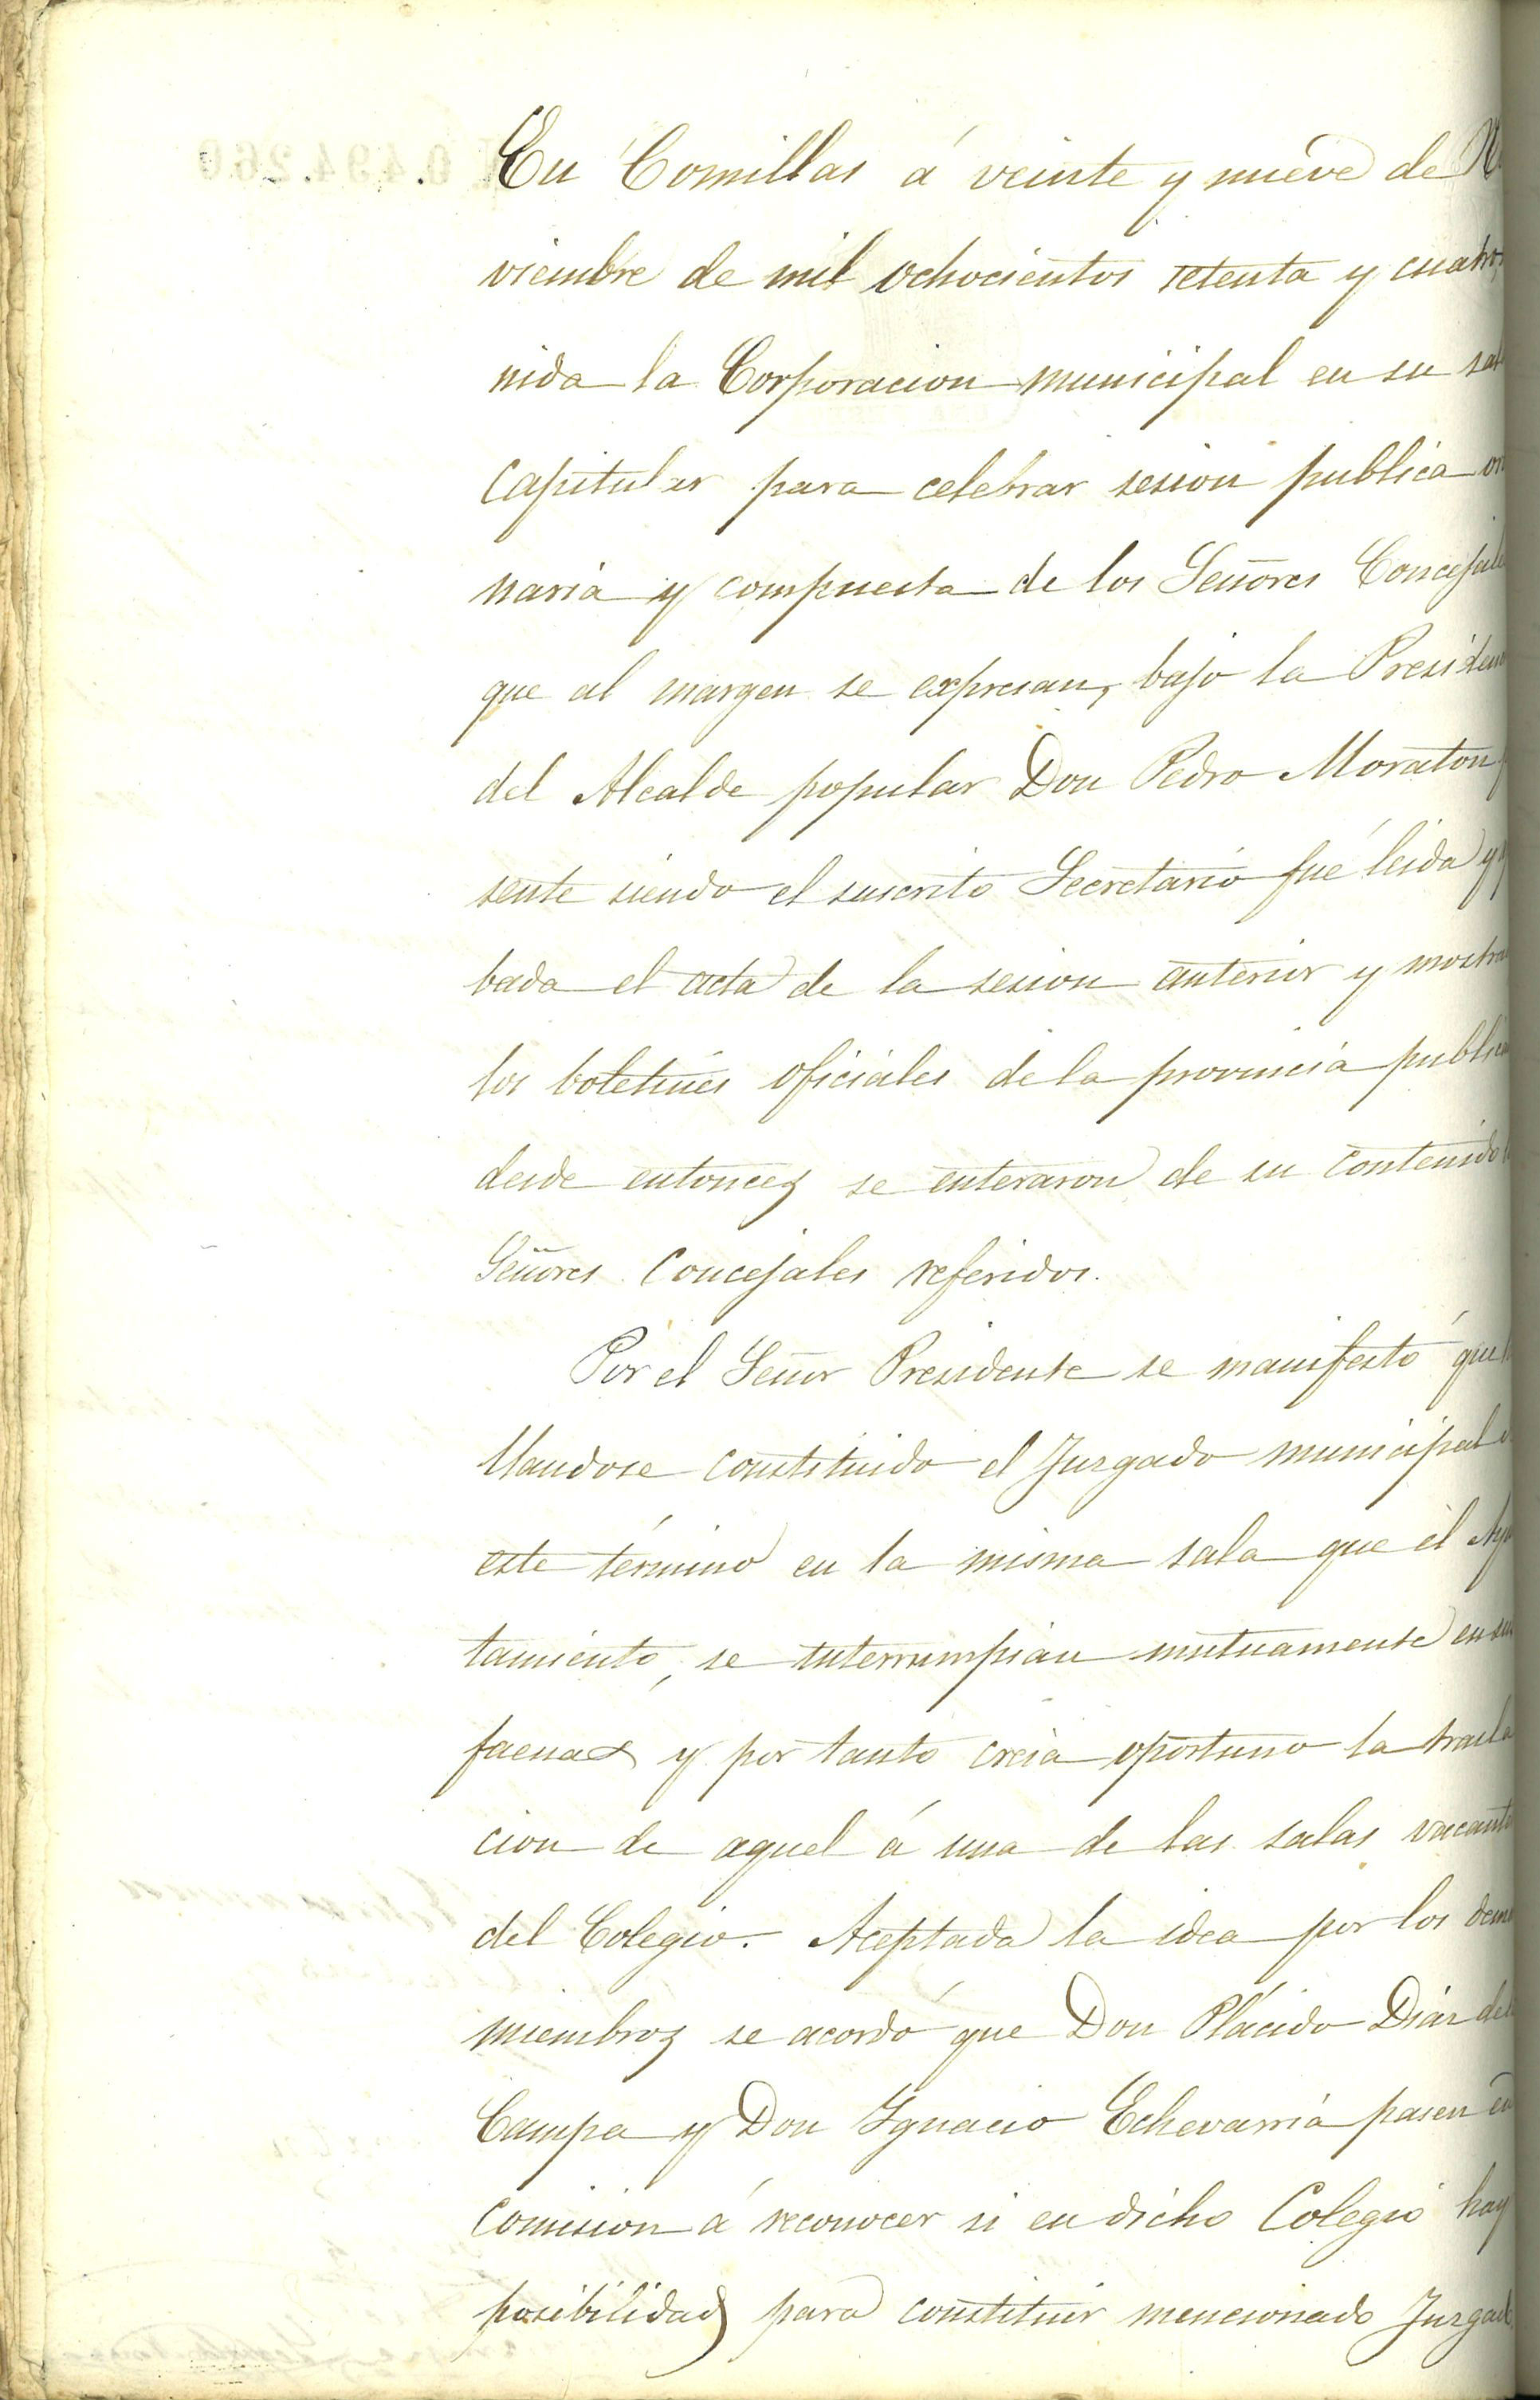 En Comillas á veinte y nueve de No
viembre de mil ochocientos setenta y cuatro,
nida la Corporacion municipal en su sal
capitular para celebrar sesion publica or
naria y compuesta de los Señores Concejale
que al margen se expresan, bajo la Presiden
del Alcalde popular Don Pedro Moraton
sente siendo el suscrito Secretario fué leida y
bada el acta de la sesion anterior y mostra
los boletines oficiales de la provincia public
desde entonces se enteraron de su contenido
Señores Concejales referidos.
Por el Señor Presidente se manifestó que
llandose constituido el Juzgado municipal
este término en la misma sala que el Ayu
tamiento, se interrumpian mutuamente en su
faenas y por tanto creia oportuno la trasla
cion de aquel á una de las salas vacante
del Colegio. Aceptada la idea por los dema
miembros se acordó que Don Plácido Diaz de
Campa y Don Ygnacio Echevarria pasen en
comision á reconocer si en dicho Colegio hay
posibilidad para constituir mencionado Juzgado